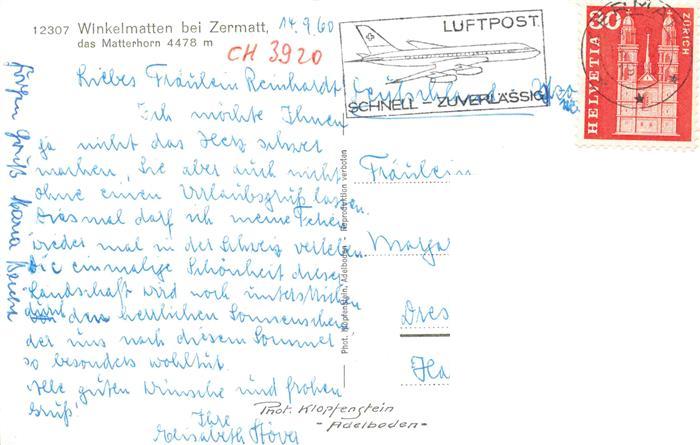 12307 Winkelmatten bei Zermatt, 14.9.60
das Matterhorn 4478 m
CH 3920
Liebes Fräulein Reinhardt
Ich möchte Ihnen
ja nicht das Herz schwer
machen, Sie aber auch nicht
ohne einen Urlaubsgruß lassen.
Diesmal darf ich meine Ferien
wieder mal in der Schweiz verleben.
Die einmalige Schönheit dieser
Landschaft wird noch unterstrichen
durch den herrlichen Sonnenschein
der uns nach diesem Sommer
so besonders wohltut.
Alle guten Wünsche und frohen
Gruß,
Ihre
Elisabeth
Gruß Maria
Phot. Klopfenstein, Adelboden - Reproduktion verboten
Phot. Klopfenstein
- Adelboden -
LUFTPOST
SCHNELL - ZUVERLÄSSIG
Deutschland
Fräulein
Dres
30
HELVETIA
ZÜRICH